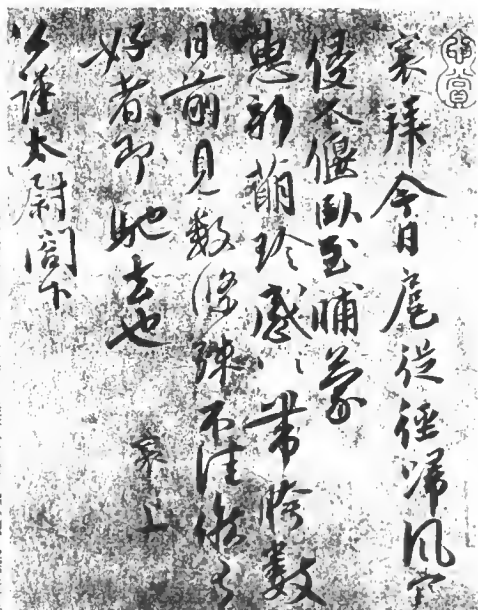 襄拜今日扈從徑歸風寒
侵人偃臥至晡蒙
惠新萠珍感〻帶胯數
日前見數條殊不佳候有
好者即馳去也
襄上
公謹太尉閣下